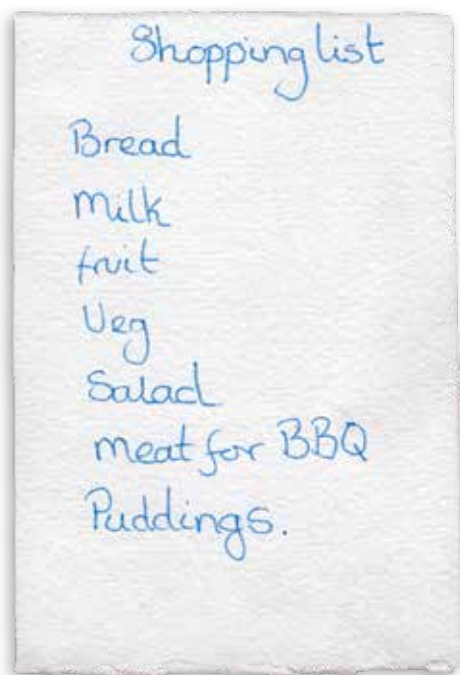 Shopping list
Bread
Milk
fruit
Veg
Salad
meat for BBQ
Puddings.